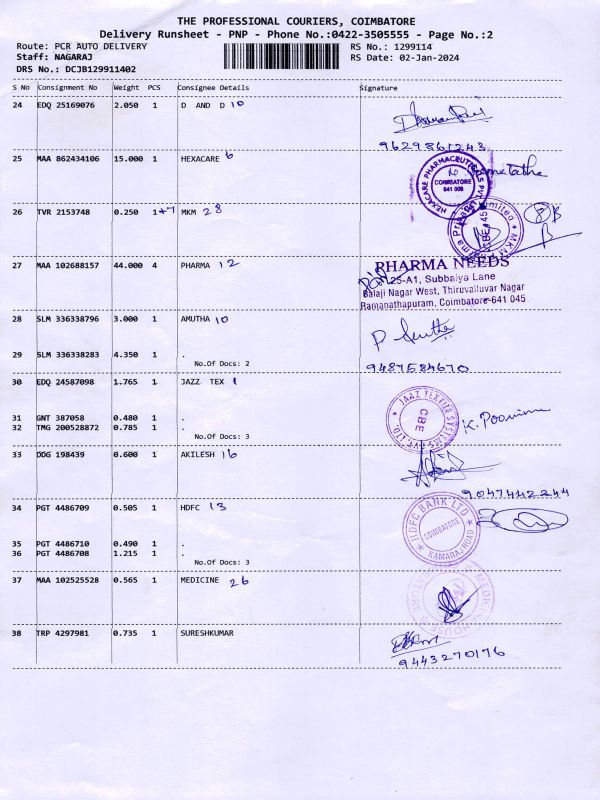 THE PROFESSIONAL COURIERS, COIMBATORE
Delivery Runsheet - PNP - Phone No.:0422-3505555 - Page No.:2
Route: PCR AUTO DELIVERY RS No.: 1299114
Staff: NAGARAJ RS Date: 02-Jan-2024
DRS No.: DCJB129911402
S No Consignment No Weight PCS Consignee Details Signature
24 EDQ 25169076 2.050 1 D AND D 10
9629861243
25 MAA 862434106 15.000 1 HEXACARE 6
HEXACARE PHARMACEUTICALS PVT.
COIMBATORE
641 008
26 TVR 2153748 0.250 1+7 MKM 28
27 MAA 102688157 44.000 4 PHARMA 12
PHARMA NEEDS
25-A1, Subbaiya Lane
Balaji Nagar West, Thiruvalluvar Nagar
Ramanathapuram, Coimbatore-641 045
28 SLM 336338796 3.000 1 AMUTHA 10
29 SLM 336338283 4.350 1 .
No.Of Docs: 2
9487584670
30 EDQ 24587098 1.765 1 JAZZ TEX 1
31 GNT 387058 0.480 1 .
32 TMG 200528872 0.785 1 .
No.Of Docs: 3
JAAZ TEXTILE SYSTEMS PVT. LTD.
CBE
K. Poornima
33 DDG 198439 0.600 1 AKILESH 16
9047442244
34 PGT 4486709 0.505 1 HDFC 13
35 PGT 4486710 0.490 1 .
36 PGT 4486708 1.215 1 .
No.Of Docs: 3
HDFC BANK LTD
COIMBATORE
KAMARAJ ROAD
37 MAA 102525528 0.565 1 MEDICINE 26
38 TRP 4297981 0.735 1 SURESHKUMAR
9443270176